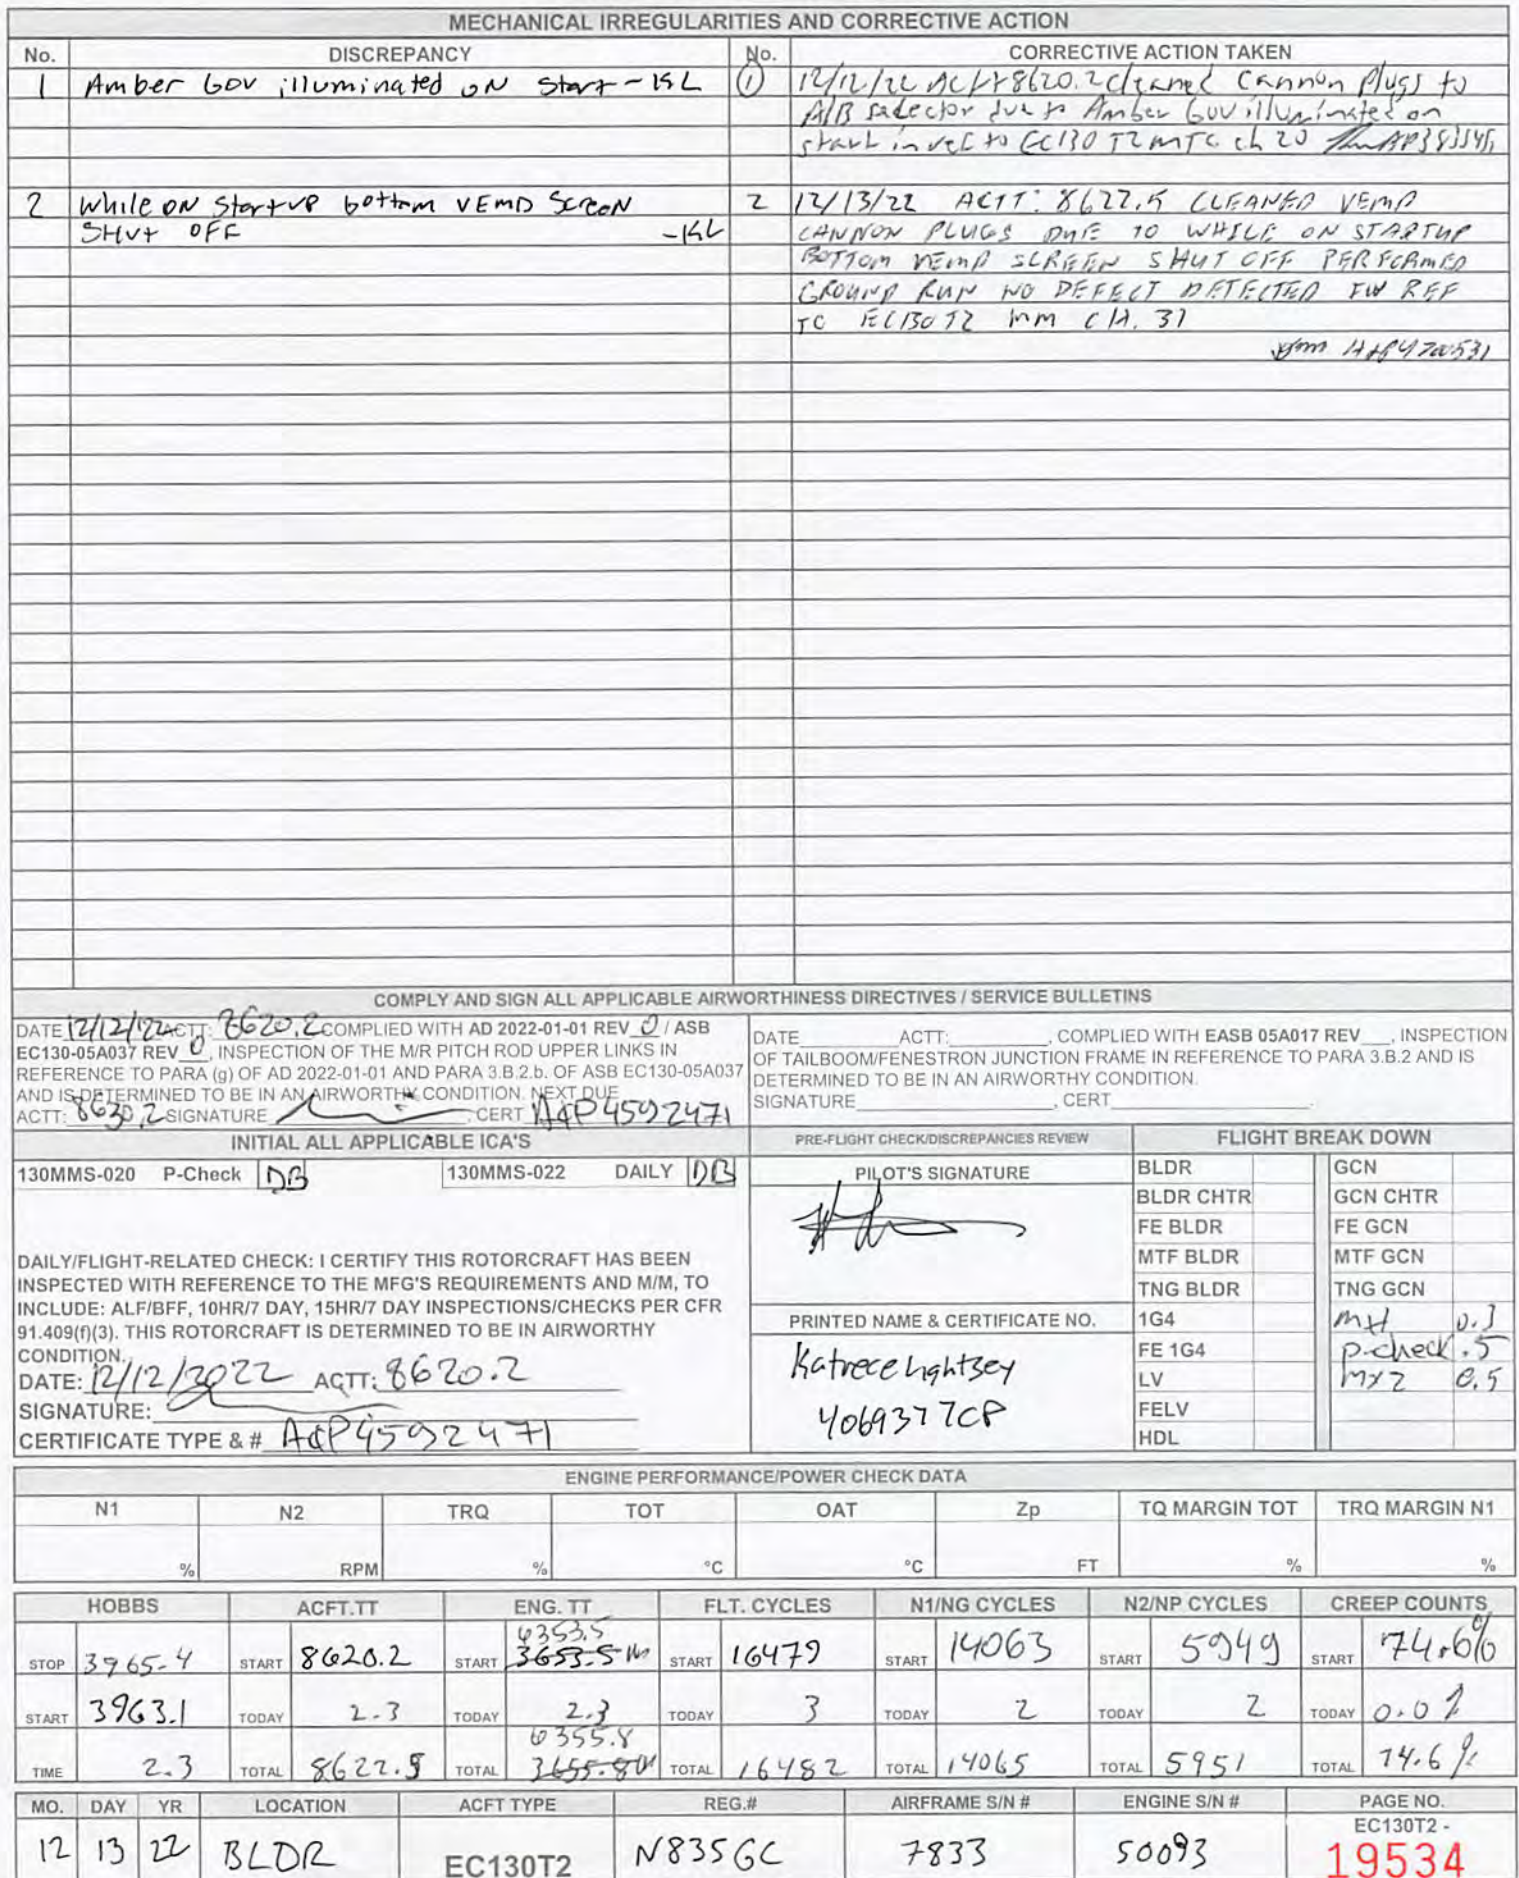 MECHANICAL IRREGULARITIES AND CORRECTIVE ACTION
No. DISCREPANCY No. CORRECTIVE ACTION TAKEN
1 Amber Gov illuminated on Start - KL
1 12/12/22 ACTT 8620.2 cleaned Cannon Plugs to
A/B selector due to Amber Gov illuminated on
start in ref to EC130 T2 MTC ch 20
2 While on Startup bottom VEMD Screen
SHUT OFF -KL
2 12/13/22 ACTT: 8622.5 CLEANED VEMD
CANNON PLUGS DUE TO WHILE ON STARTUP
BOTTOM VEMD SCREEN SHUT OFF PERFORMED
GROUND RUN NO DEFECT DETECTED IW REF
TO EC130T2 MM CH. 31
COMPLY AND SIGN ALL APPLICABLE AIRWORTHINESS DIRECTIVES / SERVICE BULLETINS
DATE 12/12/22 ACTT: 8620.2 COMPLIED WITH AD 2022-01-01 REV 0 / ASB
EC130-05A037 REV 0, INSPECTION OF THE M/R PITCH ROD UPPER LINKS IN
REFERENCE TO PARA (g) OF AD 2022-01-01 AND PARA 3.B.2.b. OF ASB EC130-05A037
AND IS DETERMINED TO BE IN AN AIRWORTHY CONDITION. NEXT DUE
ACTT: 8630.2 SIGNATURE , CERT A&P 4592471
DATE ACTT: , COMPLIED WITH EASB 05A017 REV , INSPECTION
OF TAILBOOM/FENESTRON JUNCTION FRAME IN REFERENCE TO PARA 3.B.2 AND IS
DETERMINED TO BE IN AN AIRWORTHY CONDITION.
SIGNATURE , CERT .
INITIAL ALL APPLICABLE ICA'S
130MMS-020 P-Check DB 130MMS-022 DAILY DB
DAILY/FLIGHT-RELATED CHECK: I CERTIFY THIS ROTORCRAFT HAS BEEN
INSPECTED WITH REFERENCE TO THE MFG'S REQUIREMENTS AND M/M, TO
INCLUDE: ALF/BFF, 10HR/7 DAY, 15HR/7 DAY INSPECTIONS/CHECKS PER CFR
91.409(f)(3). THIS ROTORCRAFT IS DETERMINED TO BE IN AIRWORTHY
CONDITION.
DATE: 12/12/2022 ACTT: 8620.2
SIGNATURE:
CERTIFICATE TYPE & # A&P 4592471
PRE-FLIGHT CHECK/DISCREPANCIES REVIEW
PILOT'S SIGNATURE
PRINTED NAME & CERTIFICATE NO.
Katrece Lightsey
4069377CP
FLIGHT BREAK DOWN
BLDR GCN
BLDR CHTR GCN CHTR
FE BLDR FE GCN
MTF BLDR MTF GCN
TNG BLDR TNG GCN
1G4 0.3
FE 1G4 P-check .5
LV MX2 0.5
FELV
HDL
ENGINE PERFORMANCE/POWER CHECK DATA
N1 N2 TRQ TOT OAT Zp TQ MARGIN TOT TRQ MARGIN N1
% RPM % °C °C FT % %
HOBBS ACFT.TT ENG. TT FLT. CYCLES N1/NG CYCLES N2/NP CYCLES CREEP COUNTS
6353.5
STOP 3965.4 START 8620.2 START 3653.5 START 16479 START 14063 START 5949 START 74.6%
START 3963.1 TODAY 2.3 TODAY 2.3 TODAY 3 TODAY 2 TODAY 2 TODAY 0.0%
6355.8
TIME 2.3 TOTAL 8622.5 TOTAL 3655.8 TOTAL 16482 TOTAL 14065 TOTAL 5951 TOTAL 74.6%
MO. DAY YR LOCATION ACFT TYPE REG.# AIRFRAME S/N # ENGINE S/N # PAGE NO.
12 13 22 BLDR EC130T2 N835GC 7833 50093 EC130T2 -
19534